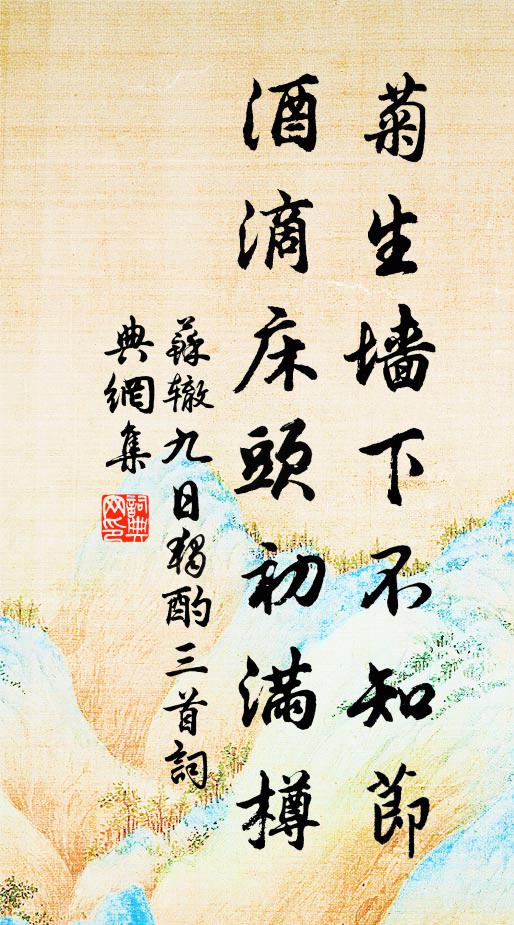 菊生墙下不知節
酒滴床頭初滿樽
蘇辙九日獨酌三首詞
典網集
詞典
网印